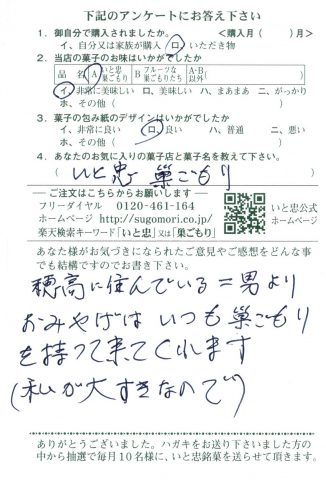 下記のアンケートにお答え下さい
1. 御自分で購入されましたか。 <購入月( )月>
イ、自分又は家族が購入 ロ、いただき物
2. 当店の菓子のお味はいかがでしたか
品名 A いと忠巣ごもり B フルーツな巣ごもりたち A・B以外( )
イ、非常に美味しい ロ、美味しい ハ、まあまあ ニ、がっかり
ホ、その他( )
3. 菓子の包み紙のデザインはいかがでしたか
イ、非常に良い ロ、良い ハ、普通 ニ、悪い
ホ、その他( )
4. あなたのお気に入りの菓子店と菓子名を教えて下さい。
(いと忠 巣ごもり )
ご注文はこちらからお願いします
フリーダイヤル 0120-461-164
ホームページ http://sugomori.co.jp/
楽天検索キーワード「いと忠」又は「巣ごもり」
いと忠公式
ホームページ
あなた様がお気づきになられたご意見やご感想をどんな事
でも結構ですのでお書き下さい。
穂高に住んでいる二男より
おみやげは いつも巣ごもり
を持って来てくれます
(私が大すきなので)
ありがとうございました。ハガキをお送り下さいました方の
中から抽選で毎月10名様に、いと忠銘菓を送らせて頂きます。